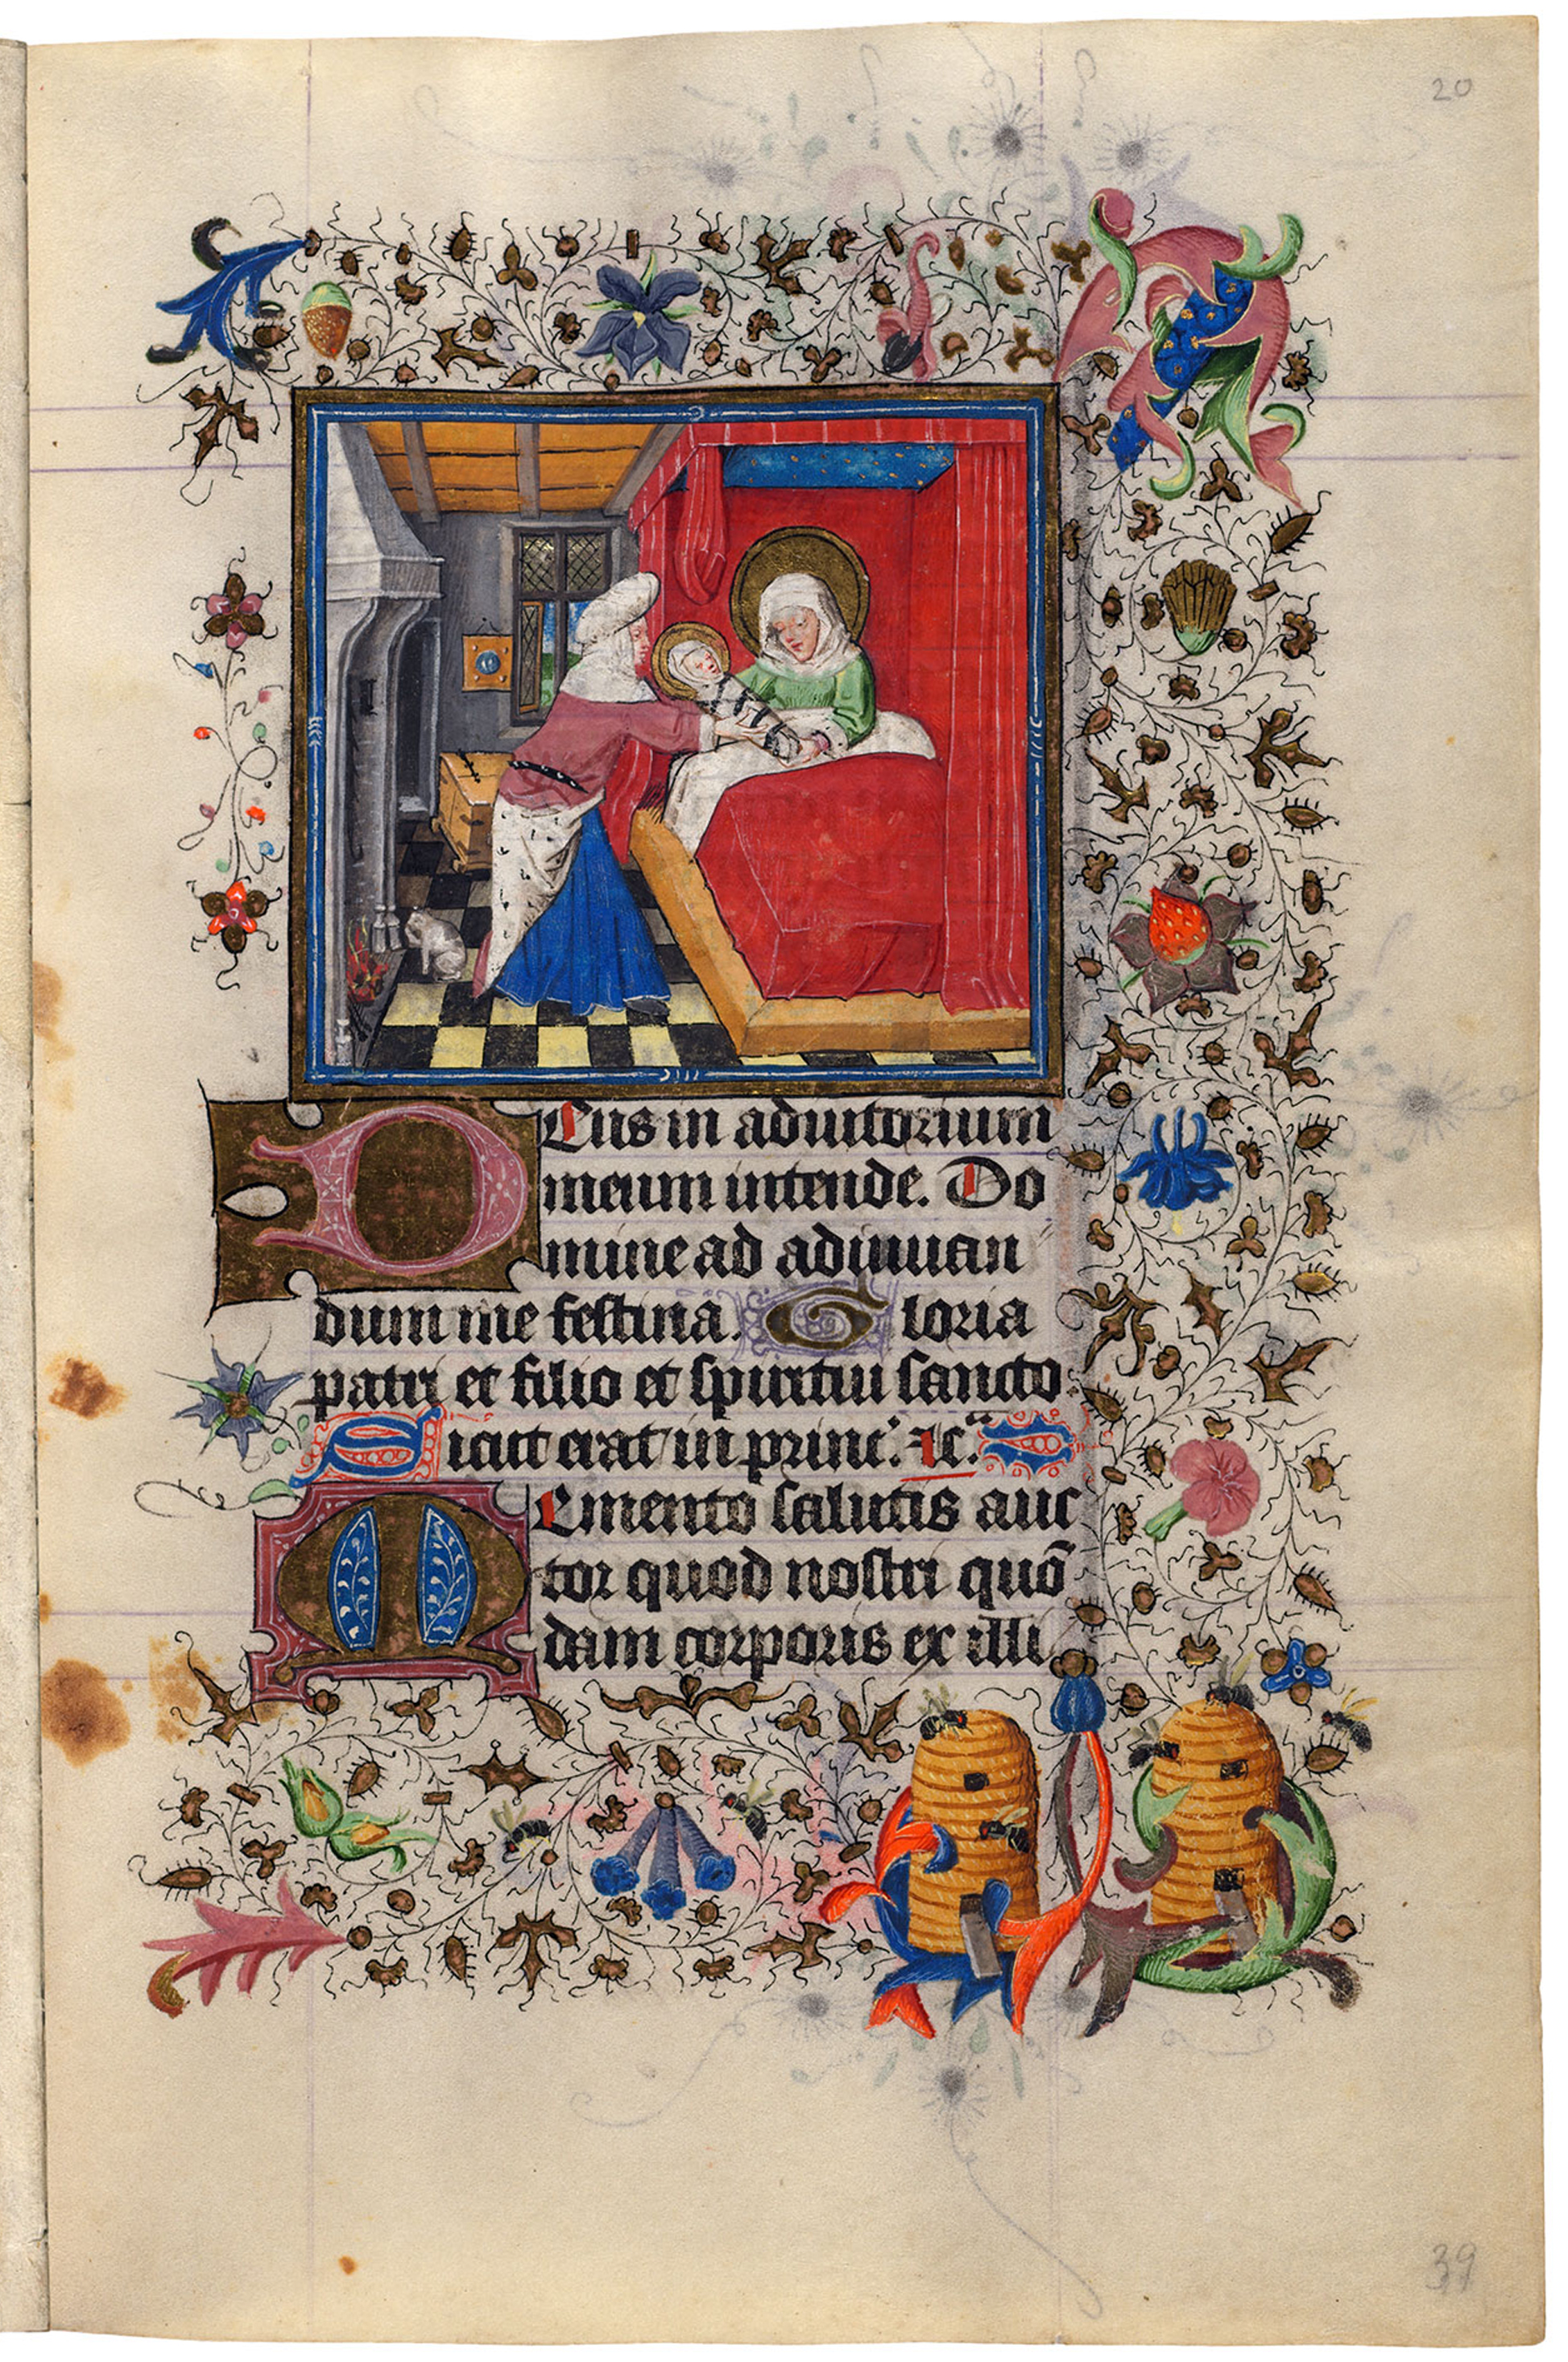 20
Deus in adiutorium
meum intende. Do
mine ad adiuuan
dum me festina. Gloria
patri et filio et spiritui sancto.
Sicut erat in princ. ⁊c.
Memento salutis auc
tor quod nostri quō
dam corporis ex illi
39